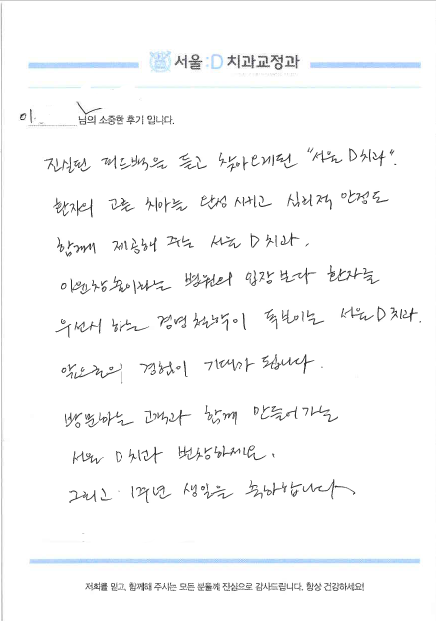 서울:D 치과교정과
이. 님의 소중한 후기 입니다.
진실된 피드백을 듣고 찾아오게된 "서울 D 치과".
환자의 고른 치아를 완성 시키고 심리적 안정도
함께 제공해 주는 서울 D 치과.
이윤창출이라는 병원의 입장 보다 환자를
우선시 하는 경영철학이 돋보이는 서울 D 치과.
앞으로의 경험이 기대가 됩니다.
방문하는 고객과 함께 만들어가는
서울 D 치과 번창하세요.
그리고 1주년 생일을 축하합니다.
저희를 믿고, 함께해 주시는 모든 분들께 진심으로 감사드립니다. 항상 건강하세요!